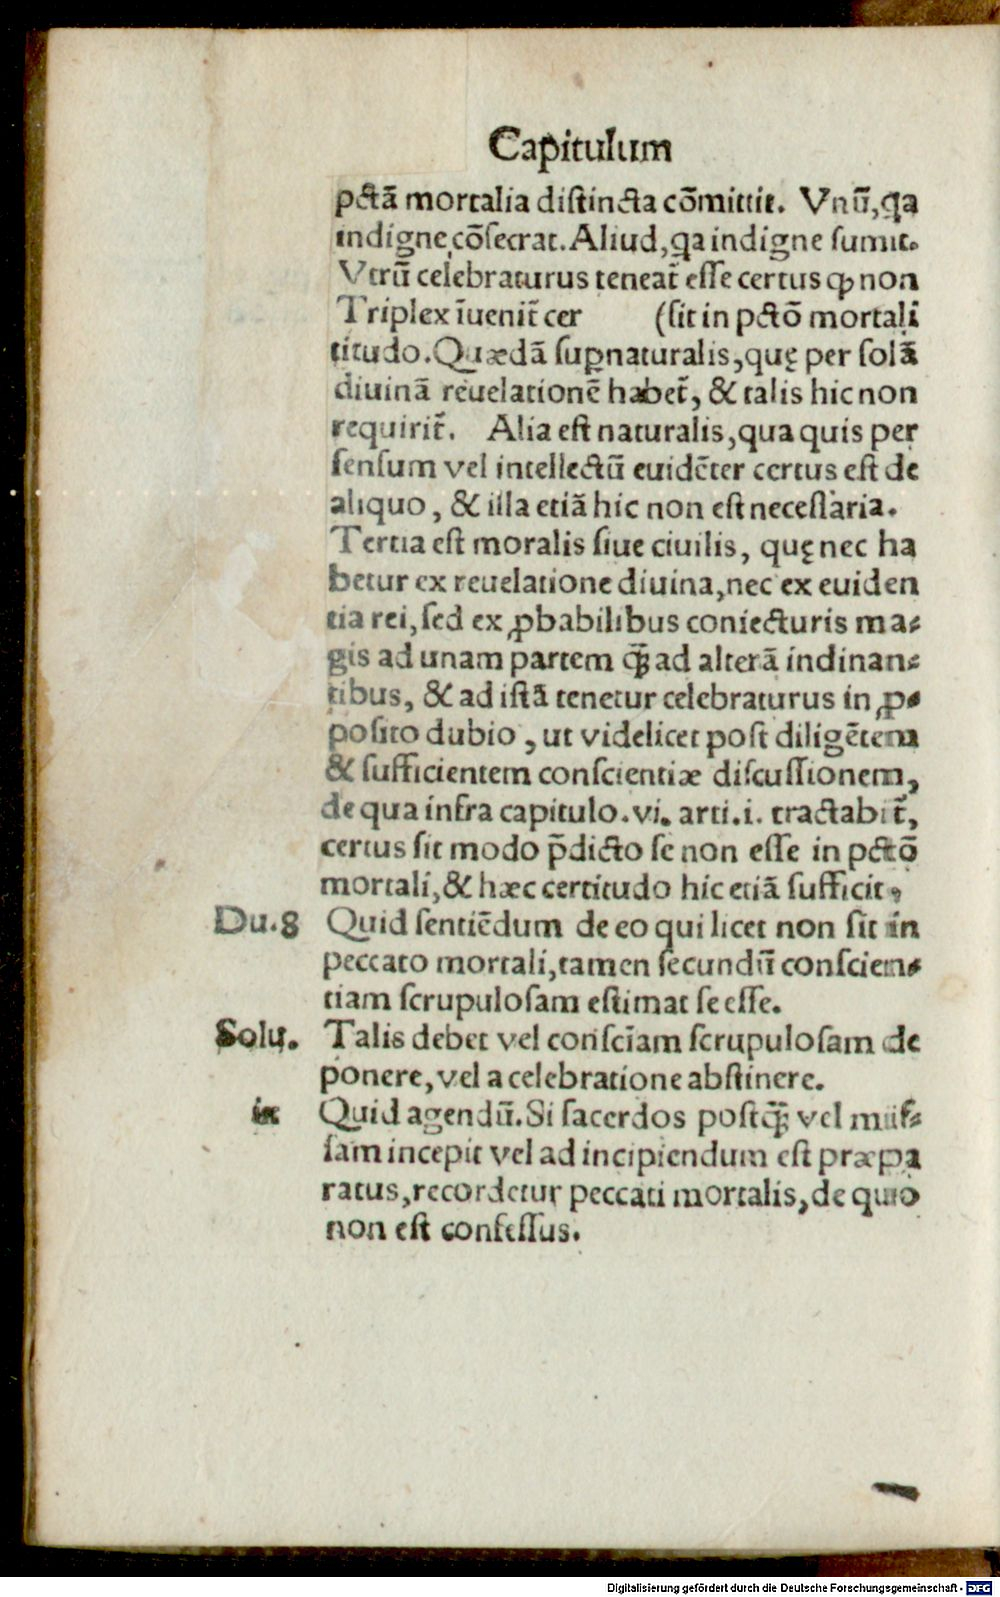 Capitulum
pctā mortalia distincta cōmittit. Vnū, qa
indigne cōsecrat. Aliud, qa indigne sumit.
Vtrū celebraturus teneat̄ esse certus ꝙ non
Triplex īuenit̄ cer (sit in pctō mortali
titudo. Quædā suꝑnaturalis, quę per solā
diuinā reuelationē habet̄, & talis hic non
requirit̄. Alia est naturalis, qua quis per
sensum vel intellectū euidēter certus est de
aliquo, & illa etiā hic non est necessaria.
Tertia est moralis siue ciuilis, quę nec ha
betur ex reuelatione diuina, nec ex euiden
tia rei, sed ex ꝓbabilibus coniecturis ma⸗
gis ad unam partem q̄ȝ ad alterā indinan⸗
tibus, & ad istā tenetur celebraturus in ꝓ⸗
posito dubio, ut videlicet post diligētem
& sufficientem conscientiæ discussionem,
de qua infra capitulo. vi. arti. i. tractabit̄,
certus sit modo p̄dicto se non esse in pctō
mortali, & hæc certitudo hic etiā sufficit,
Du. 8 Quid sentiēdum de eo qui licet non sit in
peccato mortali, tamen secundū conscien⸗
tiam scrupulosam estimat se esse.
Solu. Talis debet vel consc̄iam scrupulosam de
ponere, vel a celebratione abstinere.
ix Quid agendū. Si sacerdos postq̄ȝ vel mis⸗
sam incepit vel ad incipiendum est præpa
ratus, recordetur peccati mortalis, de quo
non est confessus.
Digitalisierung gefördert durch die Deutsche Forschungsgemeinschaft - DFG